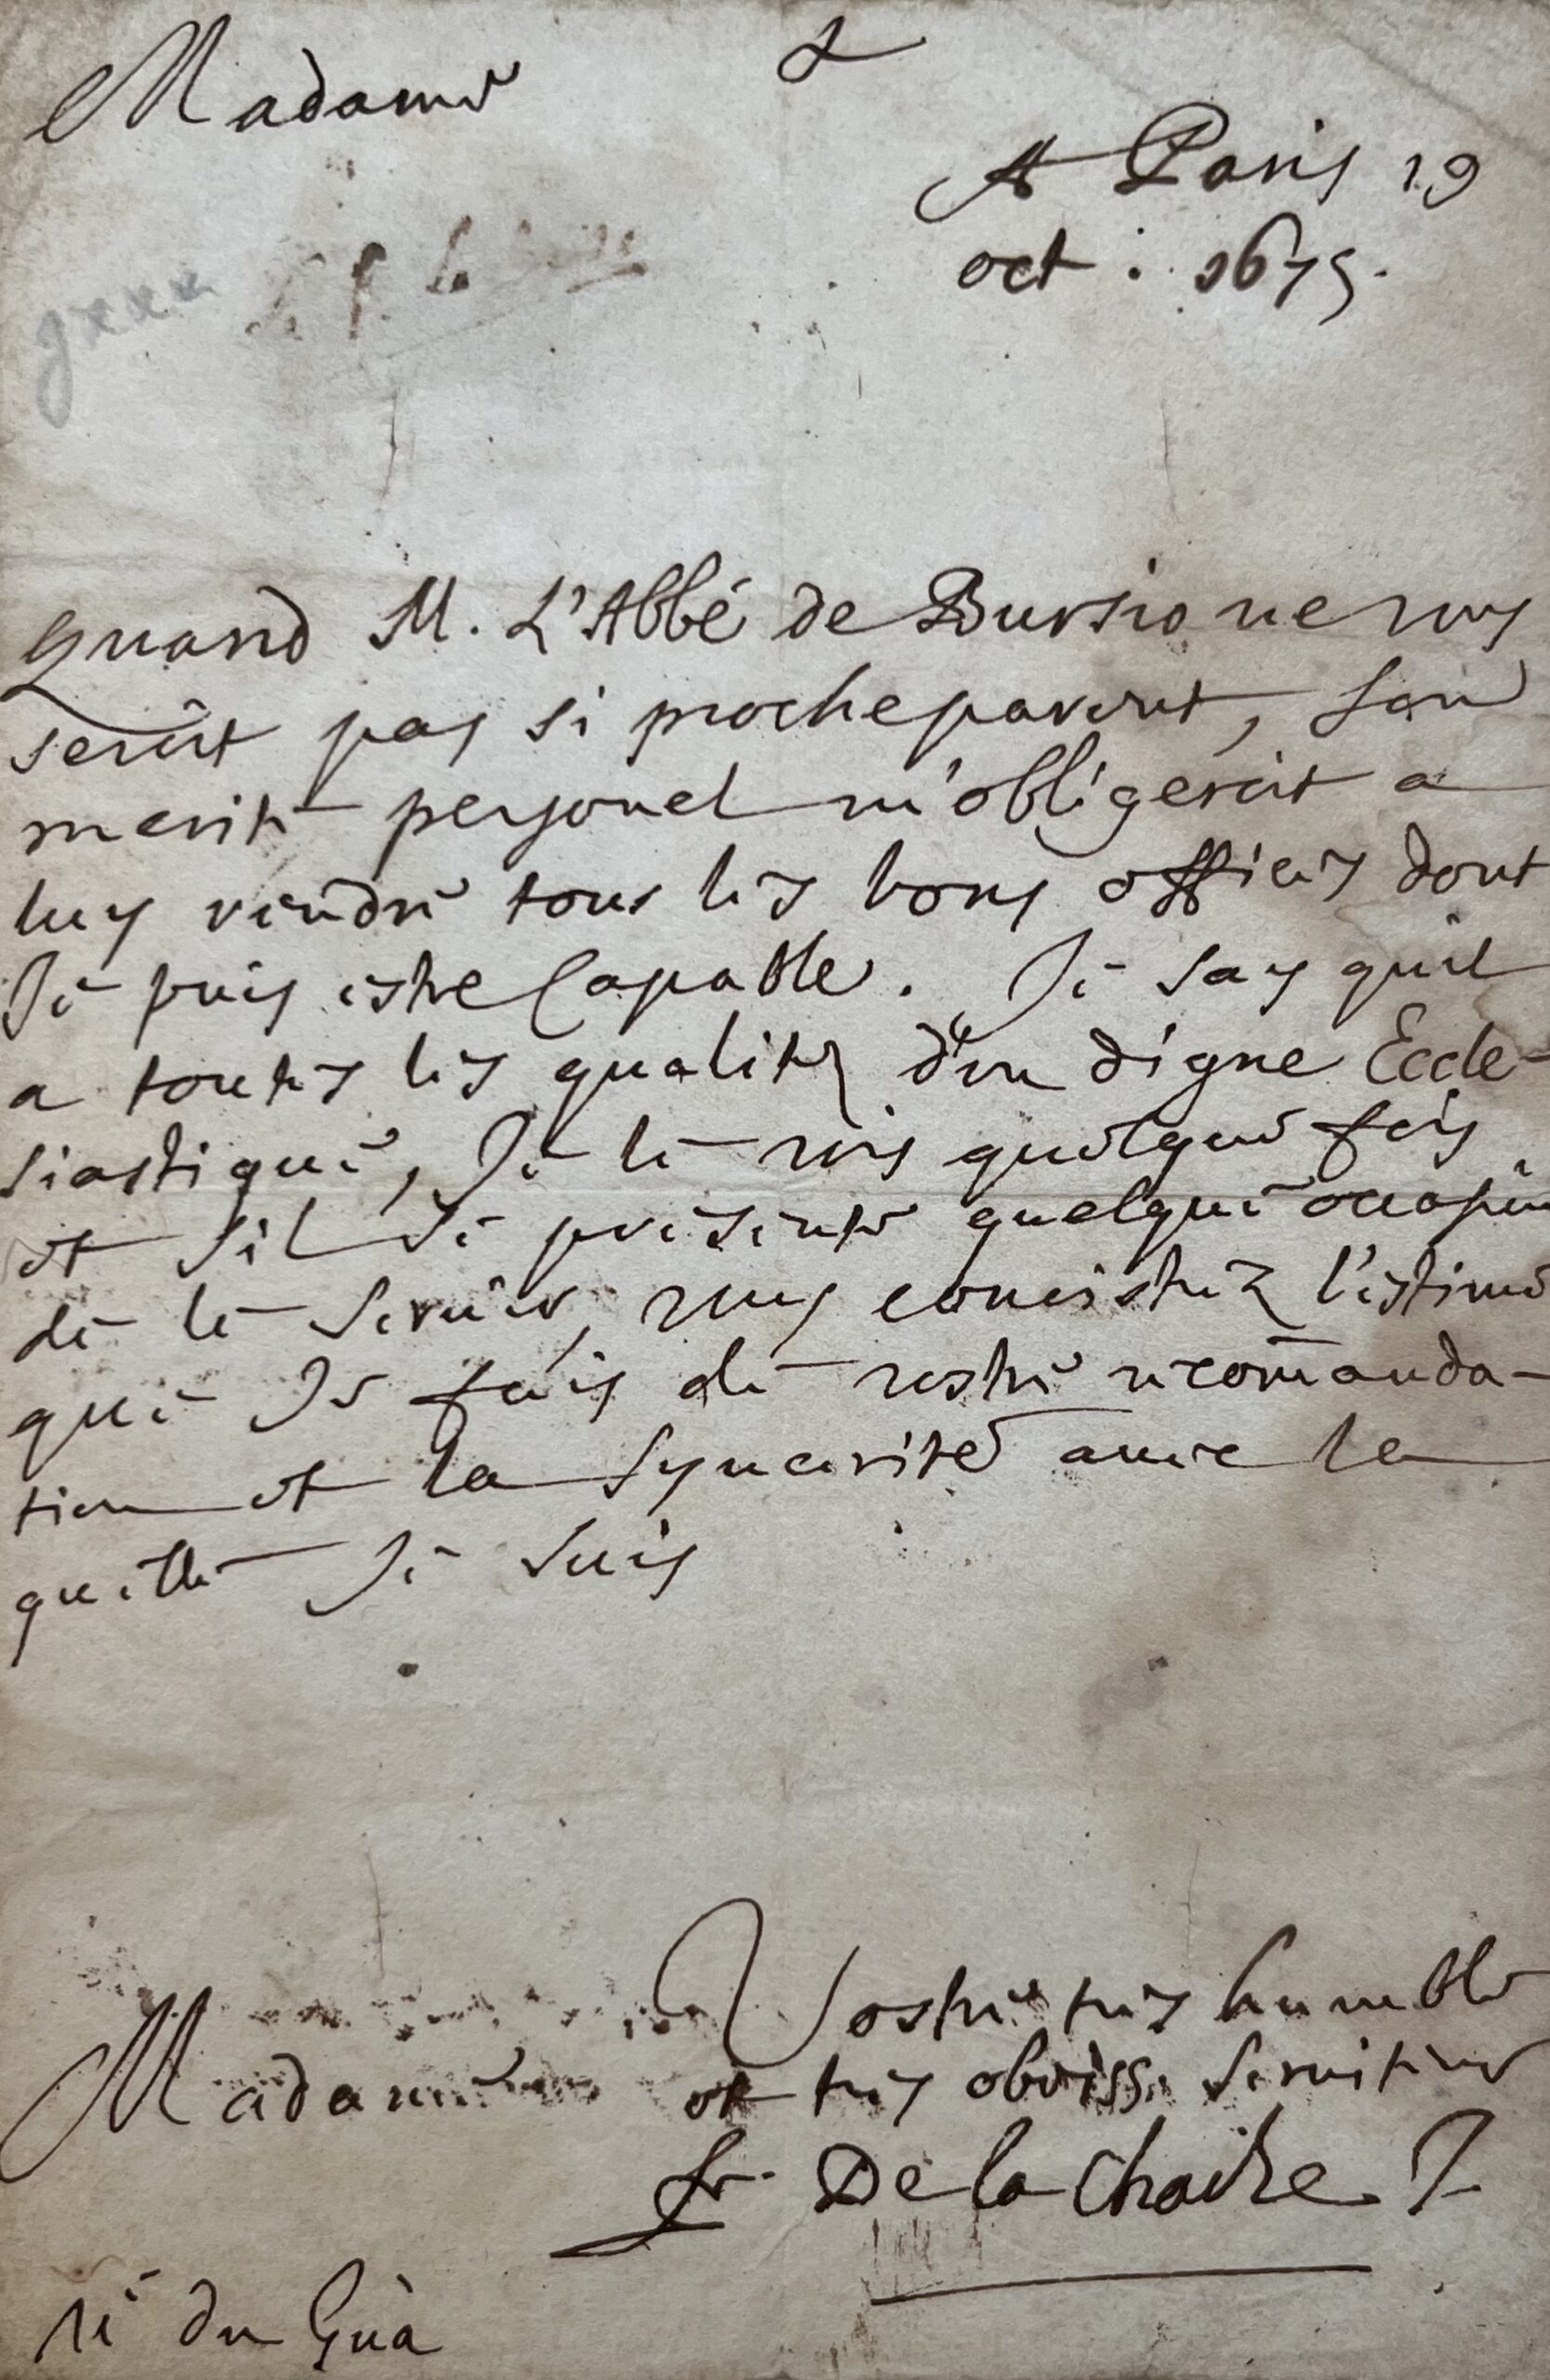 Madame
A Paris 19
oct : 1675.
quand M. L'Abbé de Bursio ne vous
seroit pas si proche parent, son
merite personel m'obligeroit a
luy rendre tous les bons offices dont
Je puis estre Capable. Je say quil
a toutes les qualitez d'un digne Eccle-
siastique, Je le vois quelque fois
et sil se presente quelque occasion
de le servir, vous conoistrez l'estime
que Je fais de vostre recomanda-
tion et la syncerité avec la
quelle Je suis
Vostre tres humble
Madame et tres obeiss. serviteur
fr. De la Chaize J
Me du Gua